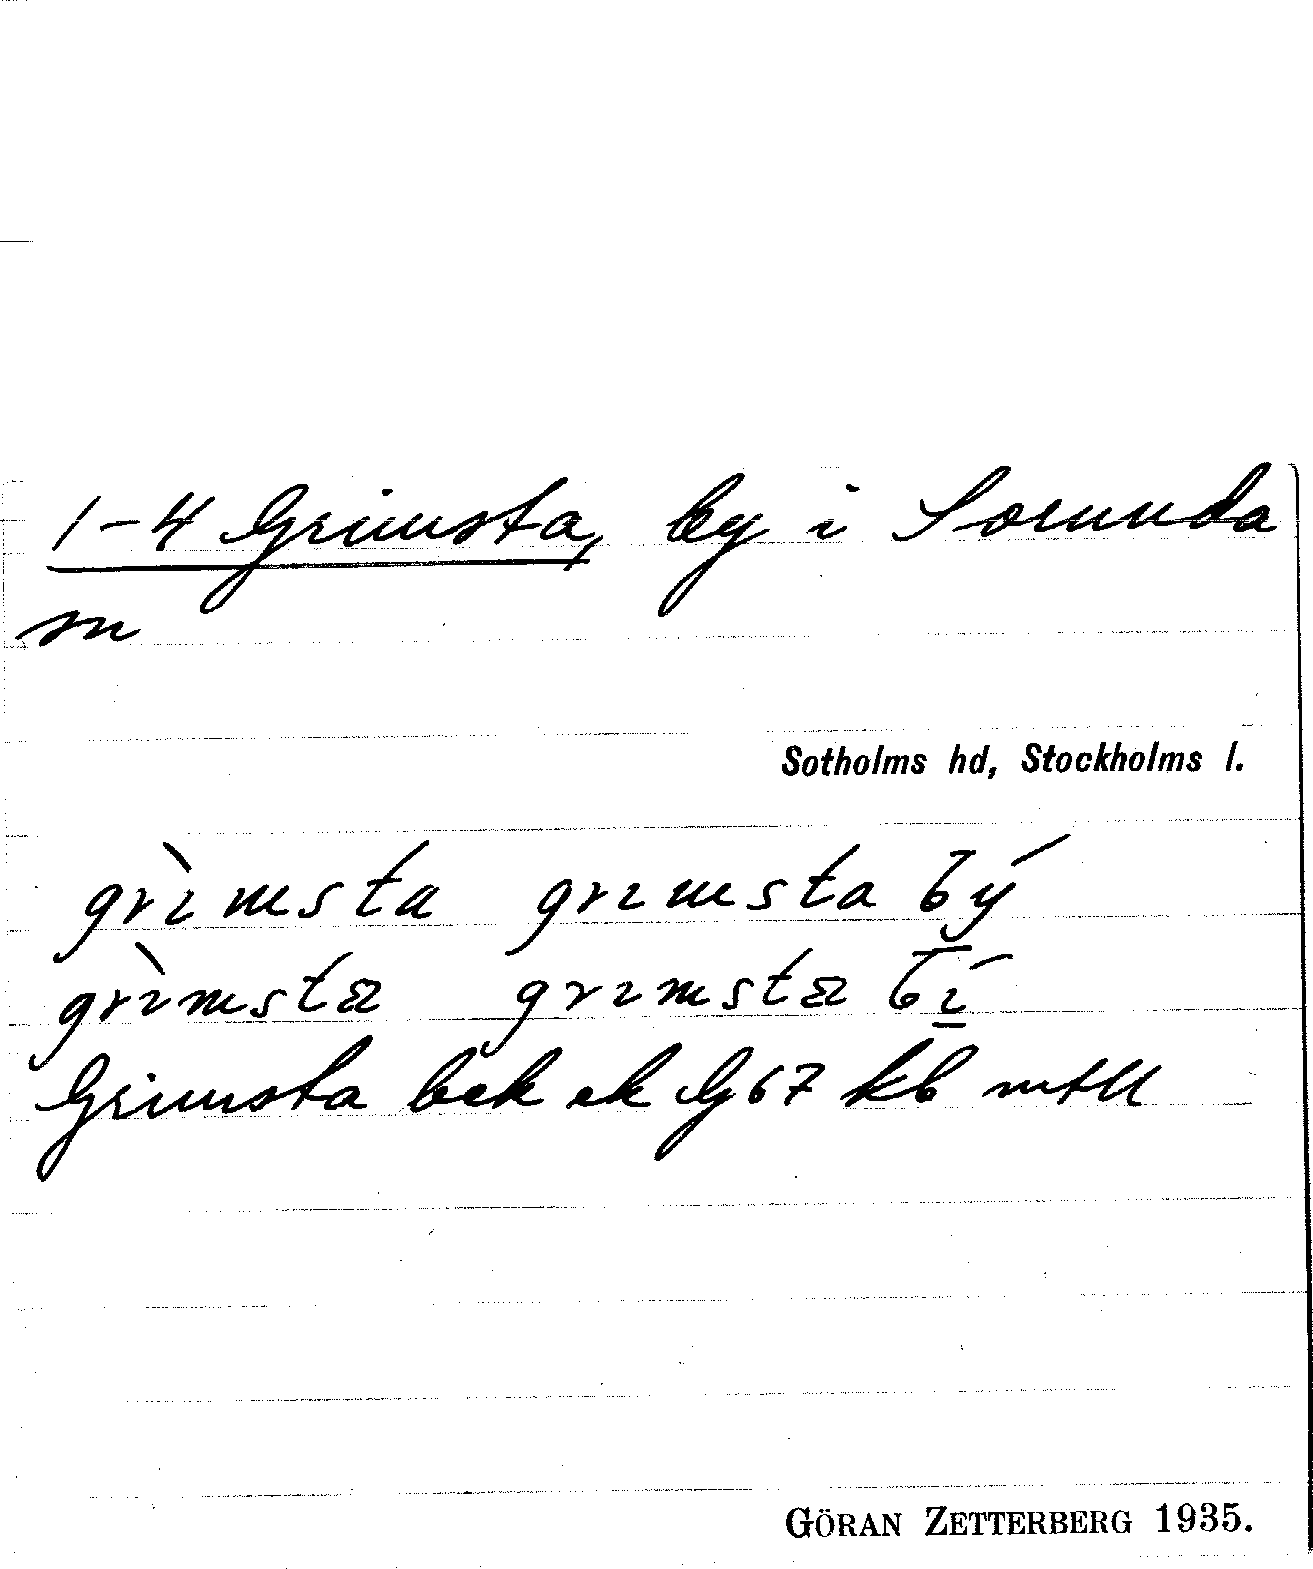 1-4 Grimsta, by i Sorunda
sn
Sotholms hd, Stockholms l.
grìmsta grımsta bý
grìmstꭤ grımstꭤ bí
Grimsta bek ek G67 kb mtll
GÖRAN ZETTERBERG 1935.